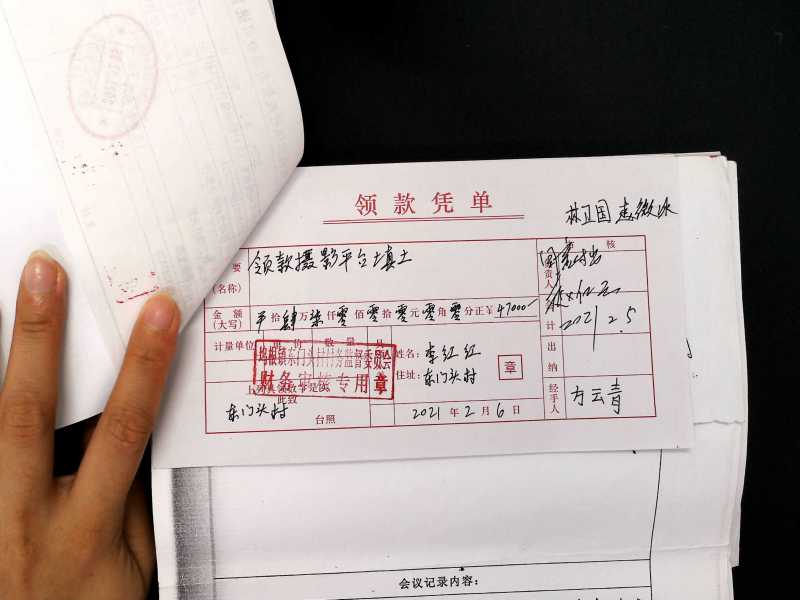 领款凭单
林卫国
要 领款摄影平台填土 核
(名称)
金额 拾肆万柒仟零佰零拾零元零角零分正￥47000
(大写)
计 2021 2.5
计量单位 单价 数量 具
坞根镇东门头村村务监督委员会
财务审核专用章
姓名: 李红红
住址: 东门头村
章
出纳
上列具领数字是实
此致
东门头村 台照
2021年2月6日
经手人 方云青
会议记录内容: